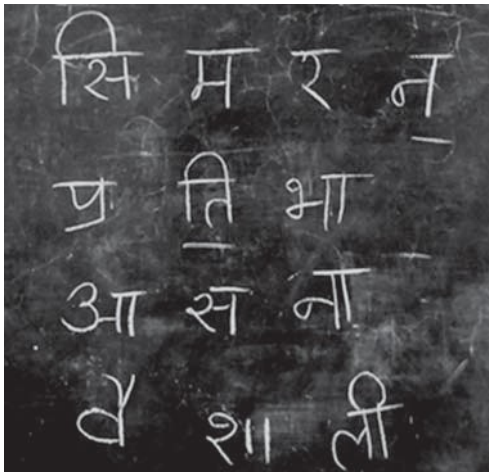 सि म र न
प्र ति भा
आ स ना
वै शा ली